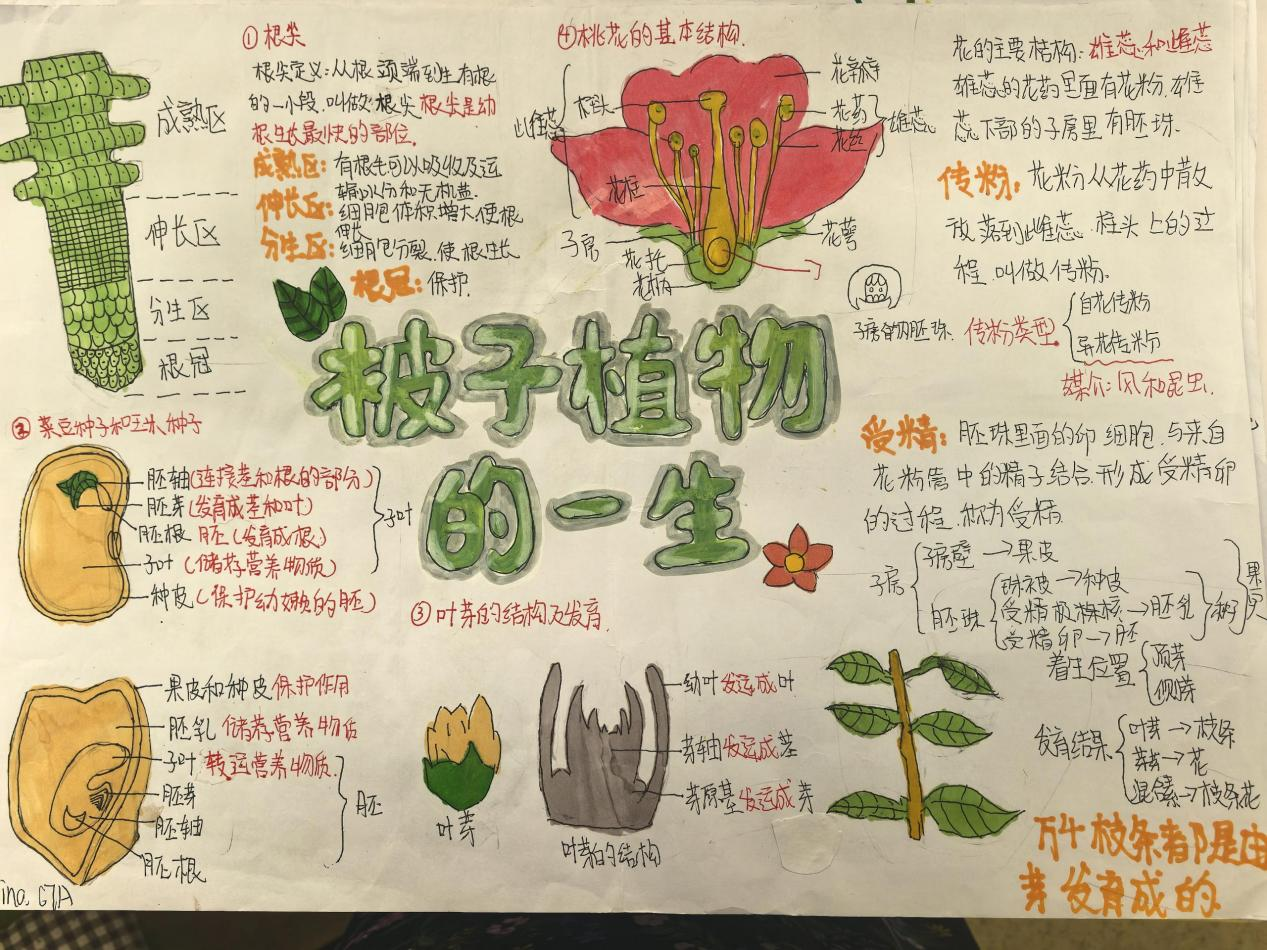 ①根尖
根尖定义:从根顶端到生有根
的一小段.叫做根尖根尖是幼
根生长最快的部位.
成熟区:有根毛可以吸收及运
输水分和无机盐.
伸长区:细胞体积增大.使根
伸长
分生区:细胞分裂.使根生长
根冠:保护.
成熟区
伸长区
分生区
根冠
④桃花的基本结构.
花瓣
柱头
花药
花丝
雄蕊
雌蕊
花柱
子房
花托
花柄
花萼
子房的内胚珠
花的主要结构:雄蕊和雌蕊
雄蕊的花药里面有花粉.雄
蕊下部的子房里有胚珠.
传粉:花粉从花药中散
放落到雌蕊.柱头上的过
程.叫做传粉.
传粉类型
自花传粉
异花传粉
媒介:风和昆虫.
被子植物
的一生
受精:胚珠里面的卵细胞.与来自
花粉管中的精子结合.形成受精卵
的过程.称为受精
子房
子房壁→果皮
胚珠
珠被→种皮
受精极核→胚乳
受精卵→胚
种子
果实
②菜豆种子和玉米种子
胚轴(连接茎和根的部分)
胚芽(发育成茎和叶)
胚根 胚(发育成根)
子叶(储存营养物质)
种皮(保护幼嫩的胚)
子叶
果皮和种皮保护作用
胚乳 储存营养物质
子叶 转运营养物质.
胚芽
胚轴
胚根
胚
③叶芽的结构及发育.
叶芽
幼叶发运成叶
芽轴发运成茎
芽原基发运成芽
叶芽的结构
着生位置
顶芽
侧芽
发育结果
叶芽→枝条
→花
→枝条花
万千枝条都是由
芽发育成的